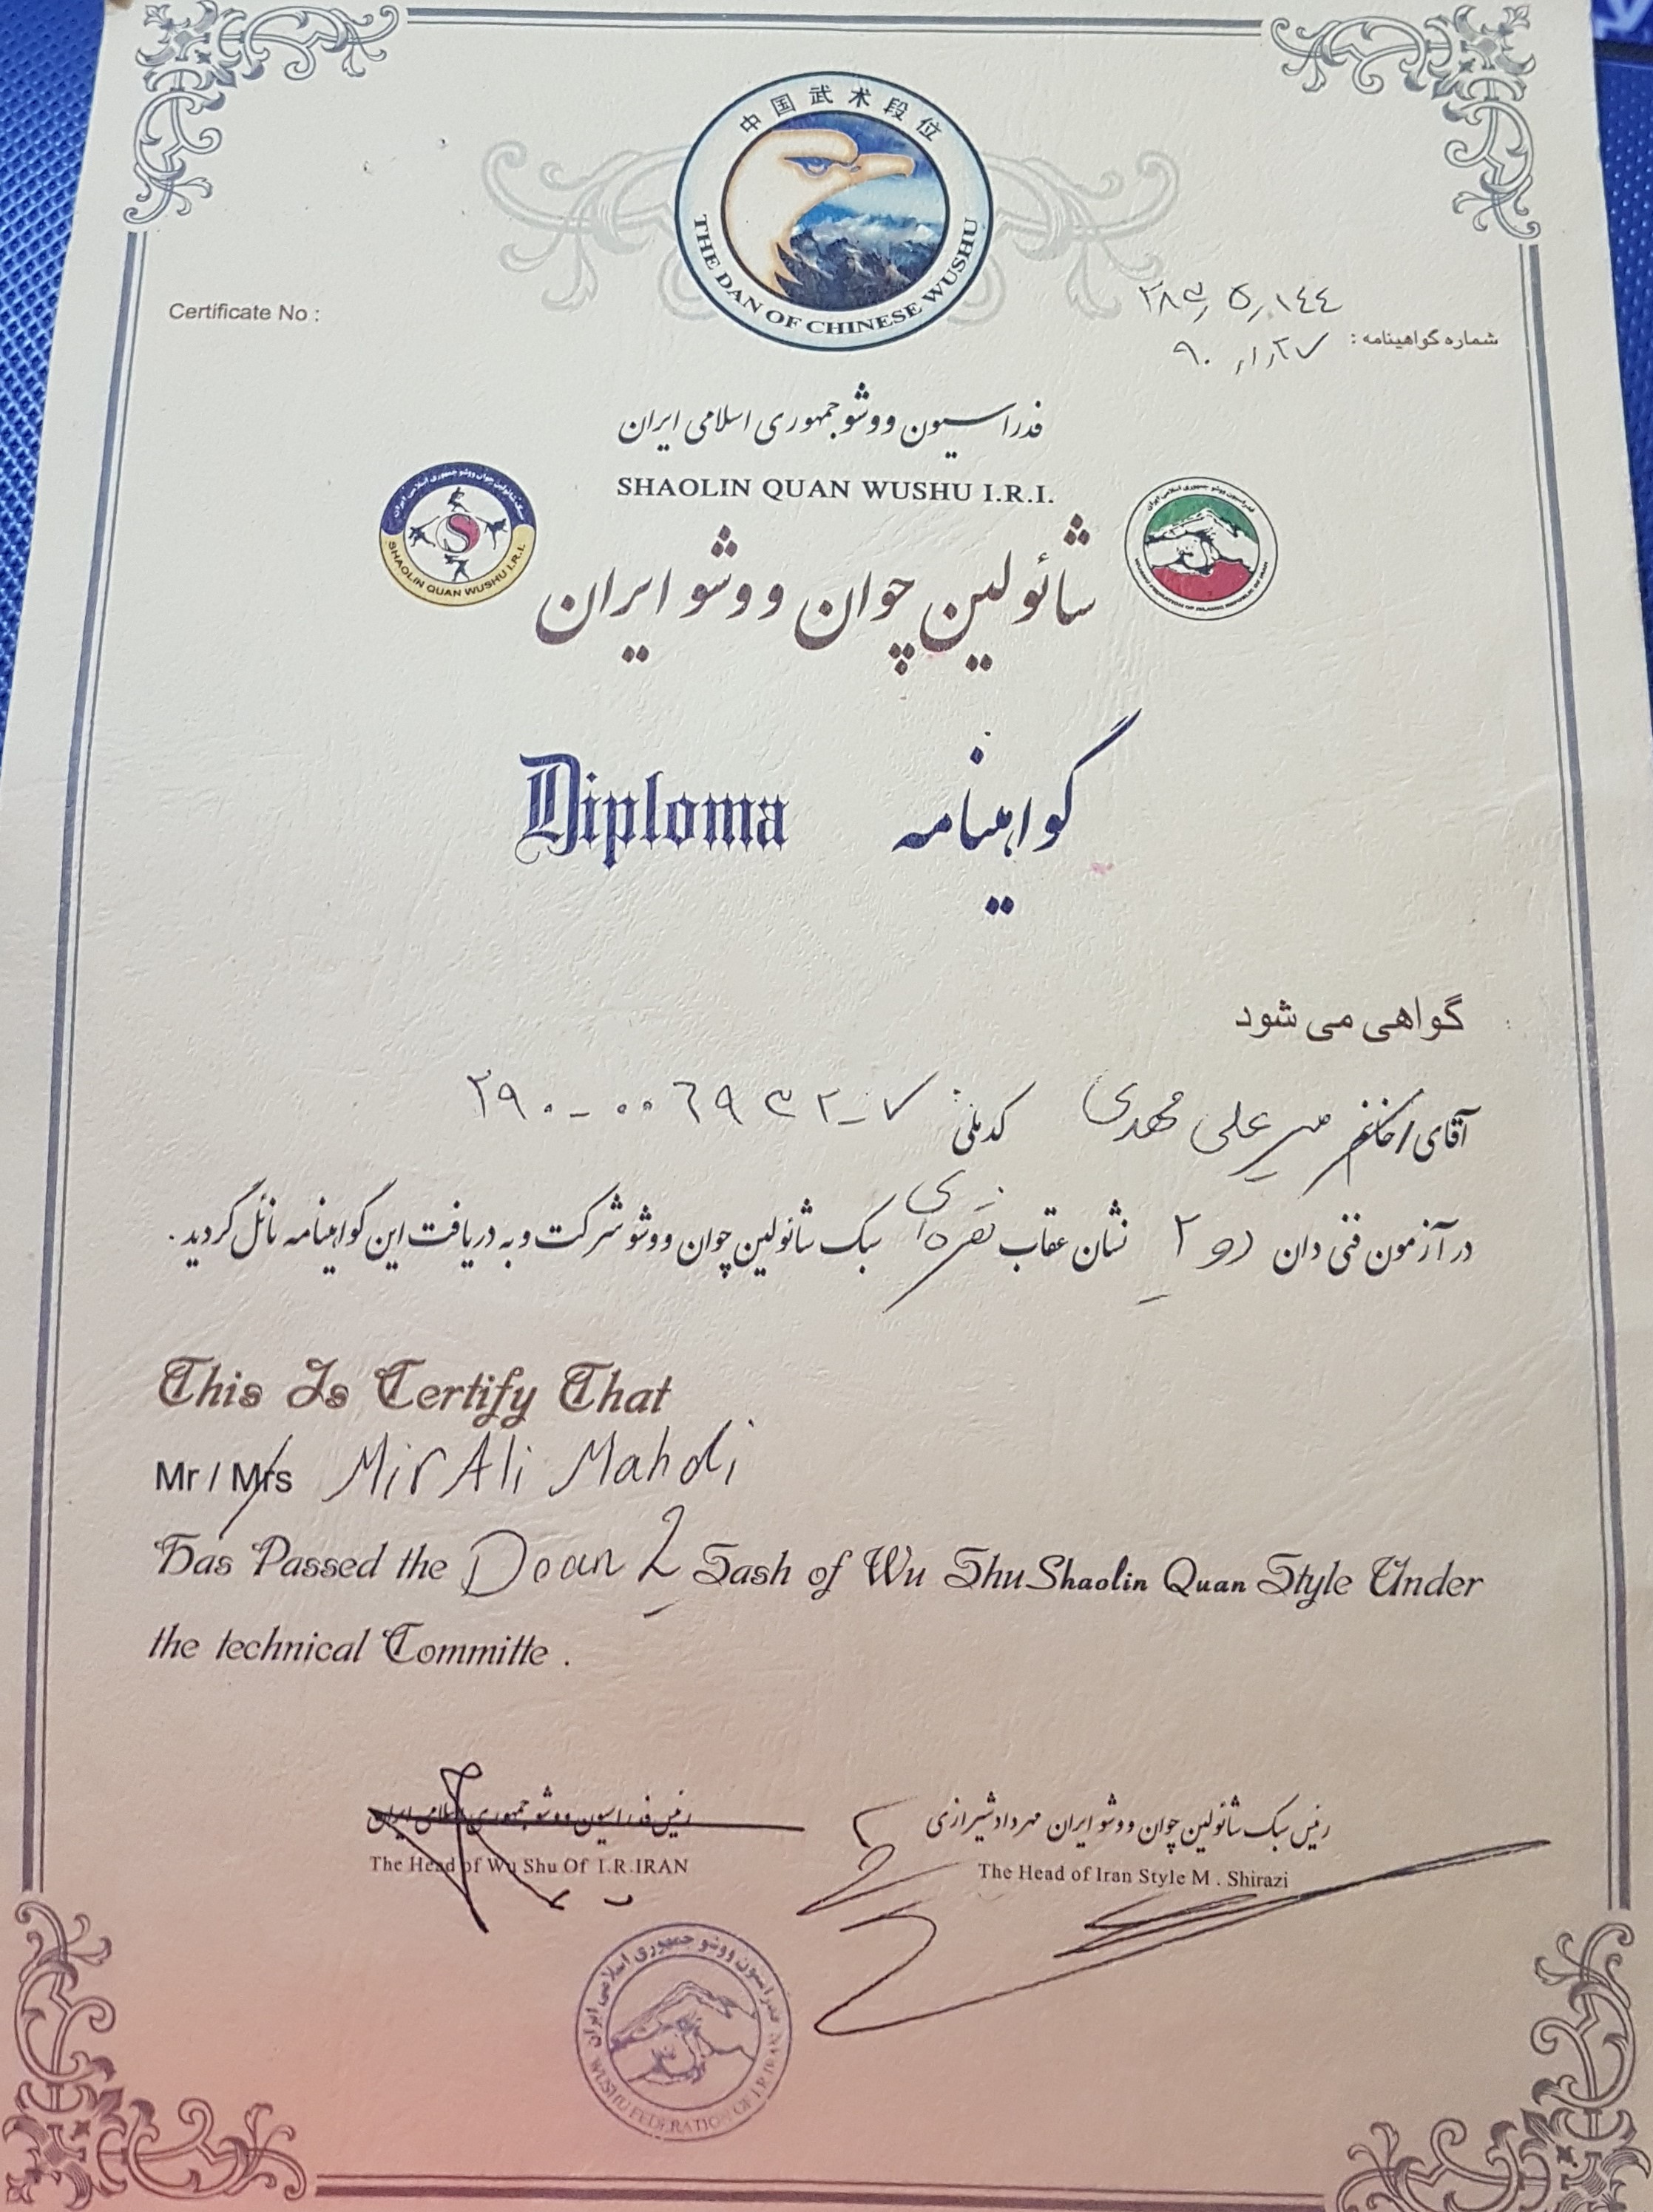 中国武术段位
THE DAN OF CHINESE WUSHU
Certificate No :
۲۸۳٫۵٫۱٤٤
شماره گواهینامه :
۹۰٫۱٫۲۷
فدراسیون ووشو جمهوری اسلامی ایران
SHAOLIN QUAN WUSHU I.R.I.
سبک شائولین چوان ووشو جمهوری اسلامی ایران
SHAOLIN QUAN WUSHU I.R.I.
فدراسیون ووشو جمهوری اسلامی ایران
WUSHU FEDERATION OF ISLAMIC REPUBLIC OF IRAN
شائولین چوان ووشو ایران
Diploma گواهینامه
گواهی می شود
آقای / خانم میر علی مهدی کد ملی: ۲۹۰-۰۰٦۹۳۲-۷
در آزمون فنی دان دو ۲ نشان عقاب نقره ای سبک شائولین چوان ووشو شرکت و به دریافت این گواهینامه نائل گردید.
This Is Certify That
Mr / Mrs Mir Ali Mahdi
Has Passed the Doan 2 Sash of Wu Shu Shaolin Quan Style Under
the technical Committe .
رئیس فدراسیون ووشو جمهوری اسلامی ایران
The Head of Wu Shu Of I.R.IRAN
رئیس سبک شائولین چوان ووشو ایران مهرداد شیرازی
The Head of Iran Style M . Shirazi
فدراسیون ووشو جمهوری اسلامی ایران
WUSHU FEDERATION OF I.R.IRAN